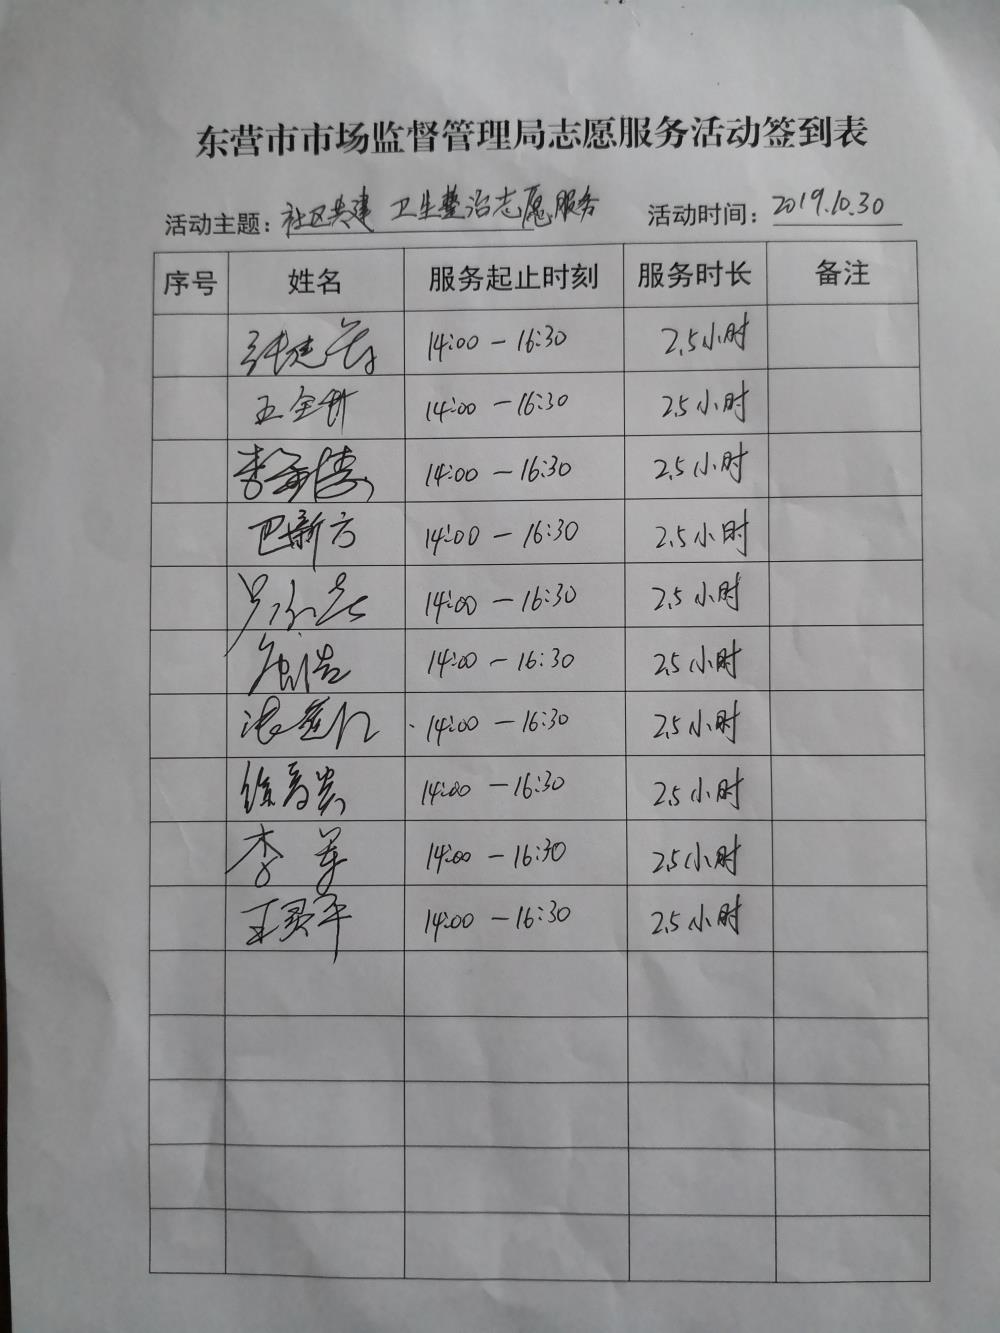 东营市市场监督管理局志愿服务活动签到表
活动主题：社区共建 卫生整治志愿服务 活动时间：2019.10.30
序号 姓名 服务起止时刻 服务时长 备注
14:00 — 16:30 2.5小时
14:00 — 16:30 2.5小时
14:00 — 16:30 2.5小时
巴新方 14:00 — 16:30 2.5小时
14:00 — 16:30 2.5小时
14:00 — 16:30 2.5小时
14:00 — 16:30 2.5小时
14:00 — 16:30 2.5小时
李军 14:00 — 16:30 2.5小时
14:00 — 16:30 2.5小时